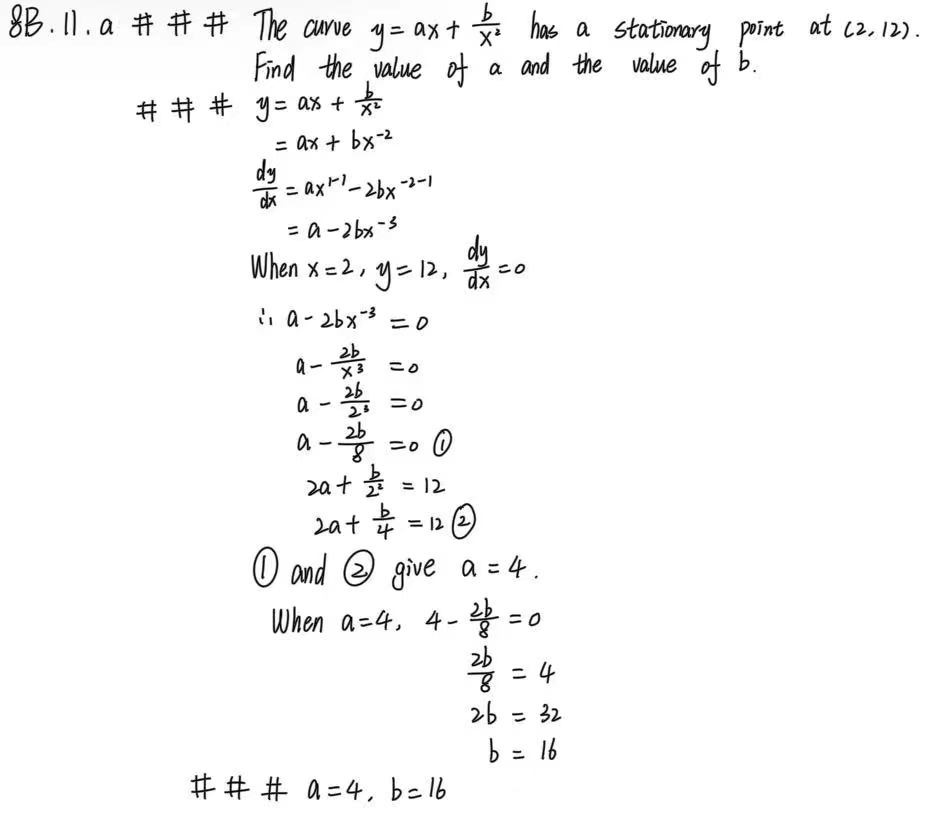 8B.11.a # # # The curve y = ax + b/x² has a stationary point at (2,12).
Find the value of a and the value of b.
# # # y = ax + b/x²
= ax + bx⁻²
dy/dx = ax¹⁻¹ - 2bx⁻²⁻¹
= a - 2bx⁻³
When x = 2, y = 12, dy/dx = 0
∴ a - 2bx⁻³ = 0
a - 2b/x³ = 0
a - 2b/2³ = 0
a - 2b/8 = 0 ①
2a + b/2² = 12
2a + b/4 = 12 ②
① and ② give a = 4.
When a = 4, 4 - 2b/8 = 0
2b/8 = 4
2b = 32
b = 16
# # # a = 4, b = 16